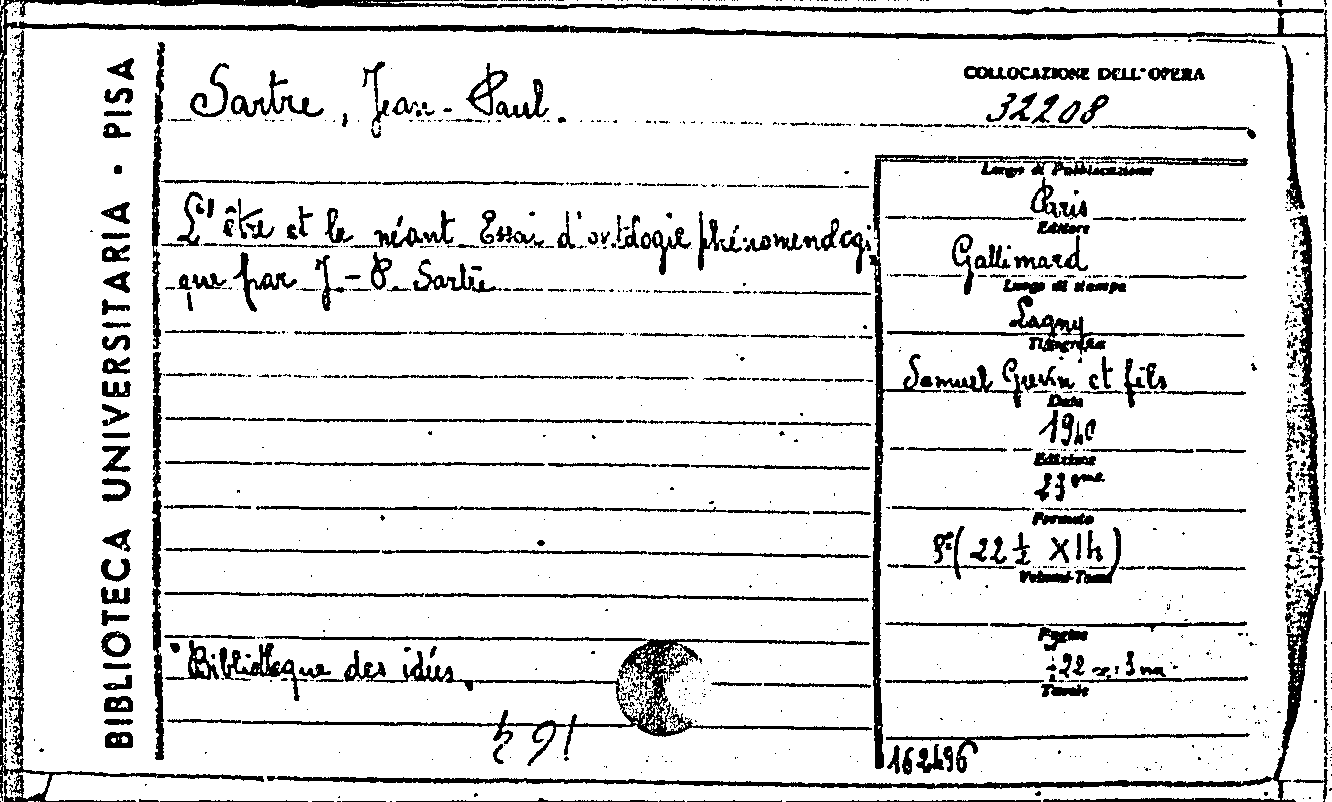 BIBLIOTECA UNIVERSITARIA · PISA
Sartre, Jean-Paul.
COLLOCAZIONE DELL'OPERA
32208
L'être et le néant Essai d'ontologie phénomenologi
que par J.-P. Sartre
Luogo di Pubblicazione
Paris
Editore
Gallimard
Luogo di stampa
Lagny
Tipografia
Samuel et fils
Data
Edizione
23ème
Formato
8°(22 ½ X 14)
Volumi-Tomi
Pagine
722
Tavole
"Bibliothèque des idées"
162496